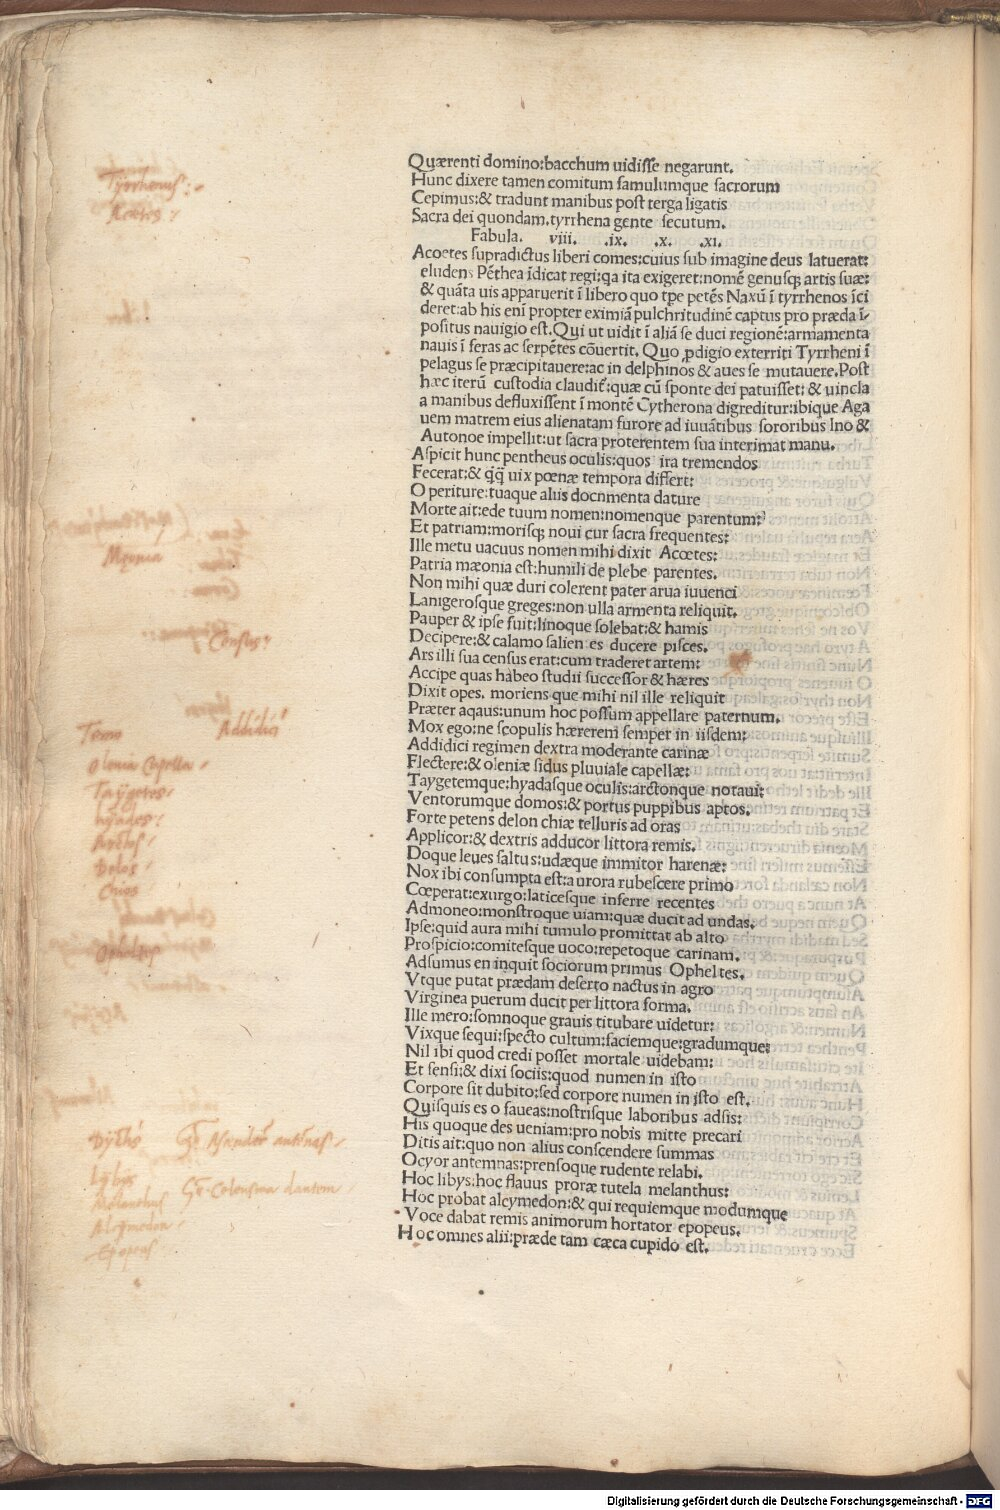 Quærenti domino:bacchum uidisse negarunt.
Hunc dixere tamen comitum famulumque sacrorum
Cepimus:& tradunt manibus post terga ligatis
Sacra dei quondam.tyrrhena gente secutum.
Fabula. viii. .ix. .x. .xi.
Acoetes supradictus liberi comes:cuius sub imagine deus latuerat:
eludens Pēthea īdicat regi:qa ita exigeret:nomē genusqꝫ artis suæ:
& quāta uis apparuerit ī libero quo tpe petēs Naxū ī tyrrhenos īci
deret:ab his enī propter eximiā pulchritudinē captus pro præda ī-
positus nauigio est.Qui ut uidit ī aliā se duci regionē:armamenta
nauis ī feras ac serpētes cōuertit. Quo ꝓdigio exterriti Tyrrheni ī
pelagus se præcipitauere:ac in delphinos & aues se mutauere.Post
hæc iterū custodia claudiť:quæ cū sponte dei patuisset: & uincla
a manibus defluxissent ī montē Cytherona digreditur:ibique Aga
uem matrem eius alienatam furore ad iuuātibus sororibus Ino &
Autonoe impellit:ut sacra proterentem sua interimat manu.
Aspicit hunc pentheus oculis:quos ira tremendos
Fecerat:& q̄q̄ uix pœnæ tempora differt:
O periture:tuaque aliis docnmenta dature
Morte ait:ede tuum nomen:nomenque parentum:
Et patriam:morisqꝫ noui cur sacra frequentes:
Ille metu uacuus nomen mihi dixit Acœtes:
Patria mæonia est:humili de plebe parentes.
Non mihi quæ duri colerent pater arua iuuenci
Lanigerosque greges:non ulla armenta reliquit.
Pauper & ipse fuit:linoque solebat:& hamis
Decipere:& calamo salien es ducere pisces.
Ars illi sua census erat:cum traderet artem:
Accipe quas habeo studii successor & hæres
Dixit opes. moriens que mihi nil ille reliquit
Præter aqaus:unum hoc possum appellare paternum.
Mox ego:ne scopulis hærerem semper in iisdem:
Addidici regimen dextra moderante carinæ
Flectere:& oleniæ sidus pluuiale capellæ:
Taygetemque:hyadasque oculis:arctonque notaui:
Ventorumque domos:& portus puppibus aptos.
Forte petens delon chiæ telluris ad oras
Applicor:& dextris adducor littora remis.
Doque leues saltus:udæque immitor harenæ:
Nox ibi consumpta est:aurora rubescere primo
Cœperat:exurgo:laticesque inferre recentes
Admoneo:monstroque uiam:quæ ducit ad undas.
Ipse:quid aura mihi tumulo promittat ab alto
Prospicio:comitesque uoco:repetoque carinam.
Adsumus en inquit sociorum primus Opheltes.
Vtque putat prædam deserto nactus in agro
Virginea puerum ducit per littora forma.
Ille mero:somnoque grauis titubare uidetur:
Vixque sequi:specto cultum:faciemque:gradumque:
Nil ibi quod credi posset mortale uidebam:
Et sensi:& dixi sociis:quod numen in isto
Corpore sit dubito:sed corpore numen in isto est.
Quisquis es o faueas:nostrisque laboribus adsis:
His quoque des ueniam:pro nobis mitte precari
Ditis ait:quo non alius conscendere summas
Ocyor antemnas:prensoque rudente relabi.
Hoc libys:hoc flauus proræ tutela melanthus:
Hoc probat alcymedon:& qui requiemque modumque
Voce dabat remis animorum hortator epopeus.
Hoc omnes alii:præde tam cæca cupido est.
Tyrrhenus:
Acetes:
Mæonia
Census:
Addidici
Olenia Capella
Taÿgetes
hÿades:
Arctos
Delos
Chios
Opheltes
Lybis
Melanthus
Alcymedon
Epopeus
Digitalisierung gefördert durch die Deutsche Forschungsgemeinschaft - DFG